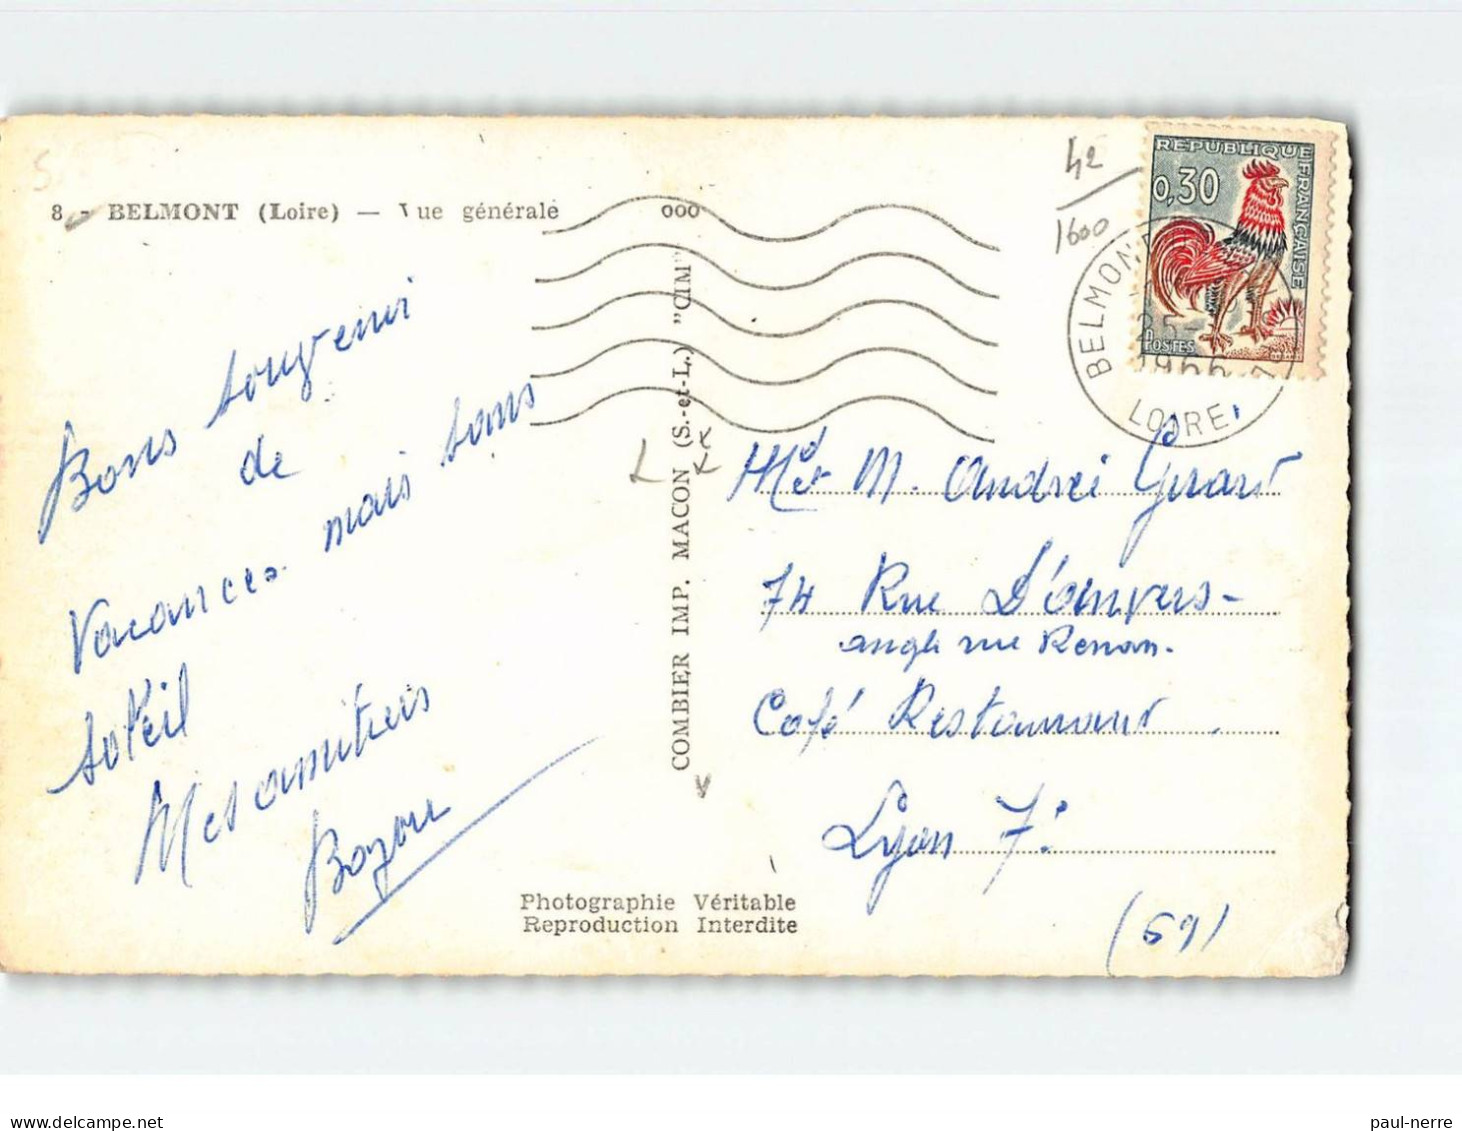 8 - BELMONT (Loire) — Vue générale
000
42
1600
REPUBLIQUE FRANÇAISE
0,30
POSTES
BELMONT
25-
1966
LOIRE
Bons souvenir
de
Vacances. mais sans
soleil
Mes amitiers
COMBIER IMP. MACON (S.-et-L.) "CIM"
Met M. Andréi Girard
74 Rue D'anvers-
angle rue Renan.
Café Restaurant
Lyon 7.
(69)
Photographie Véritable
Reproduction Interdite
paul-nerre